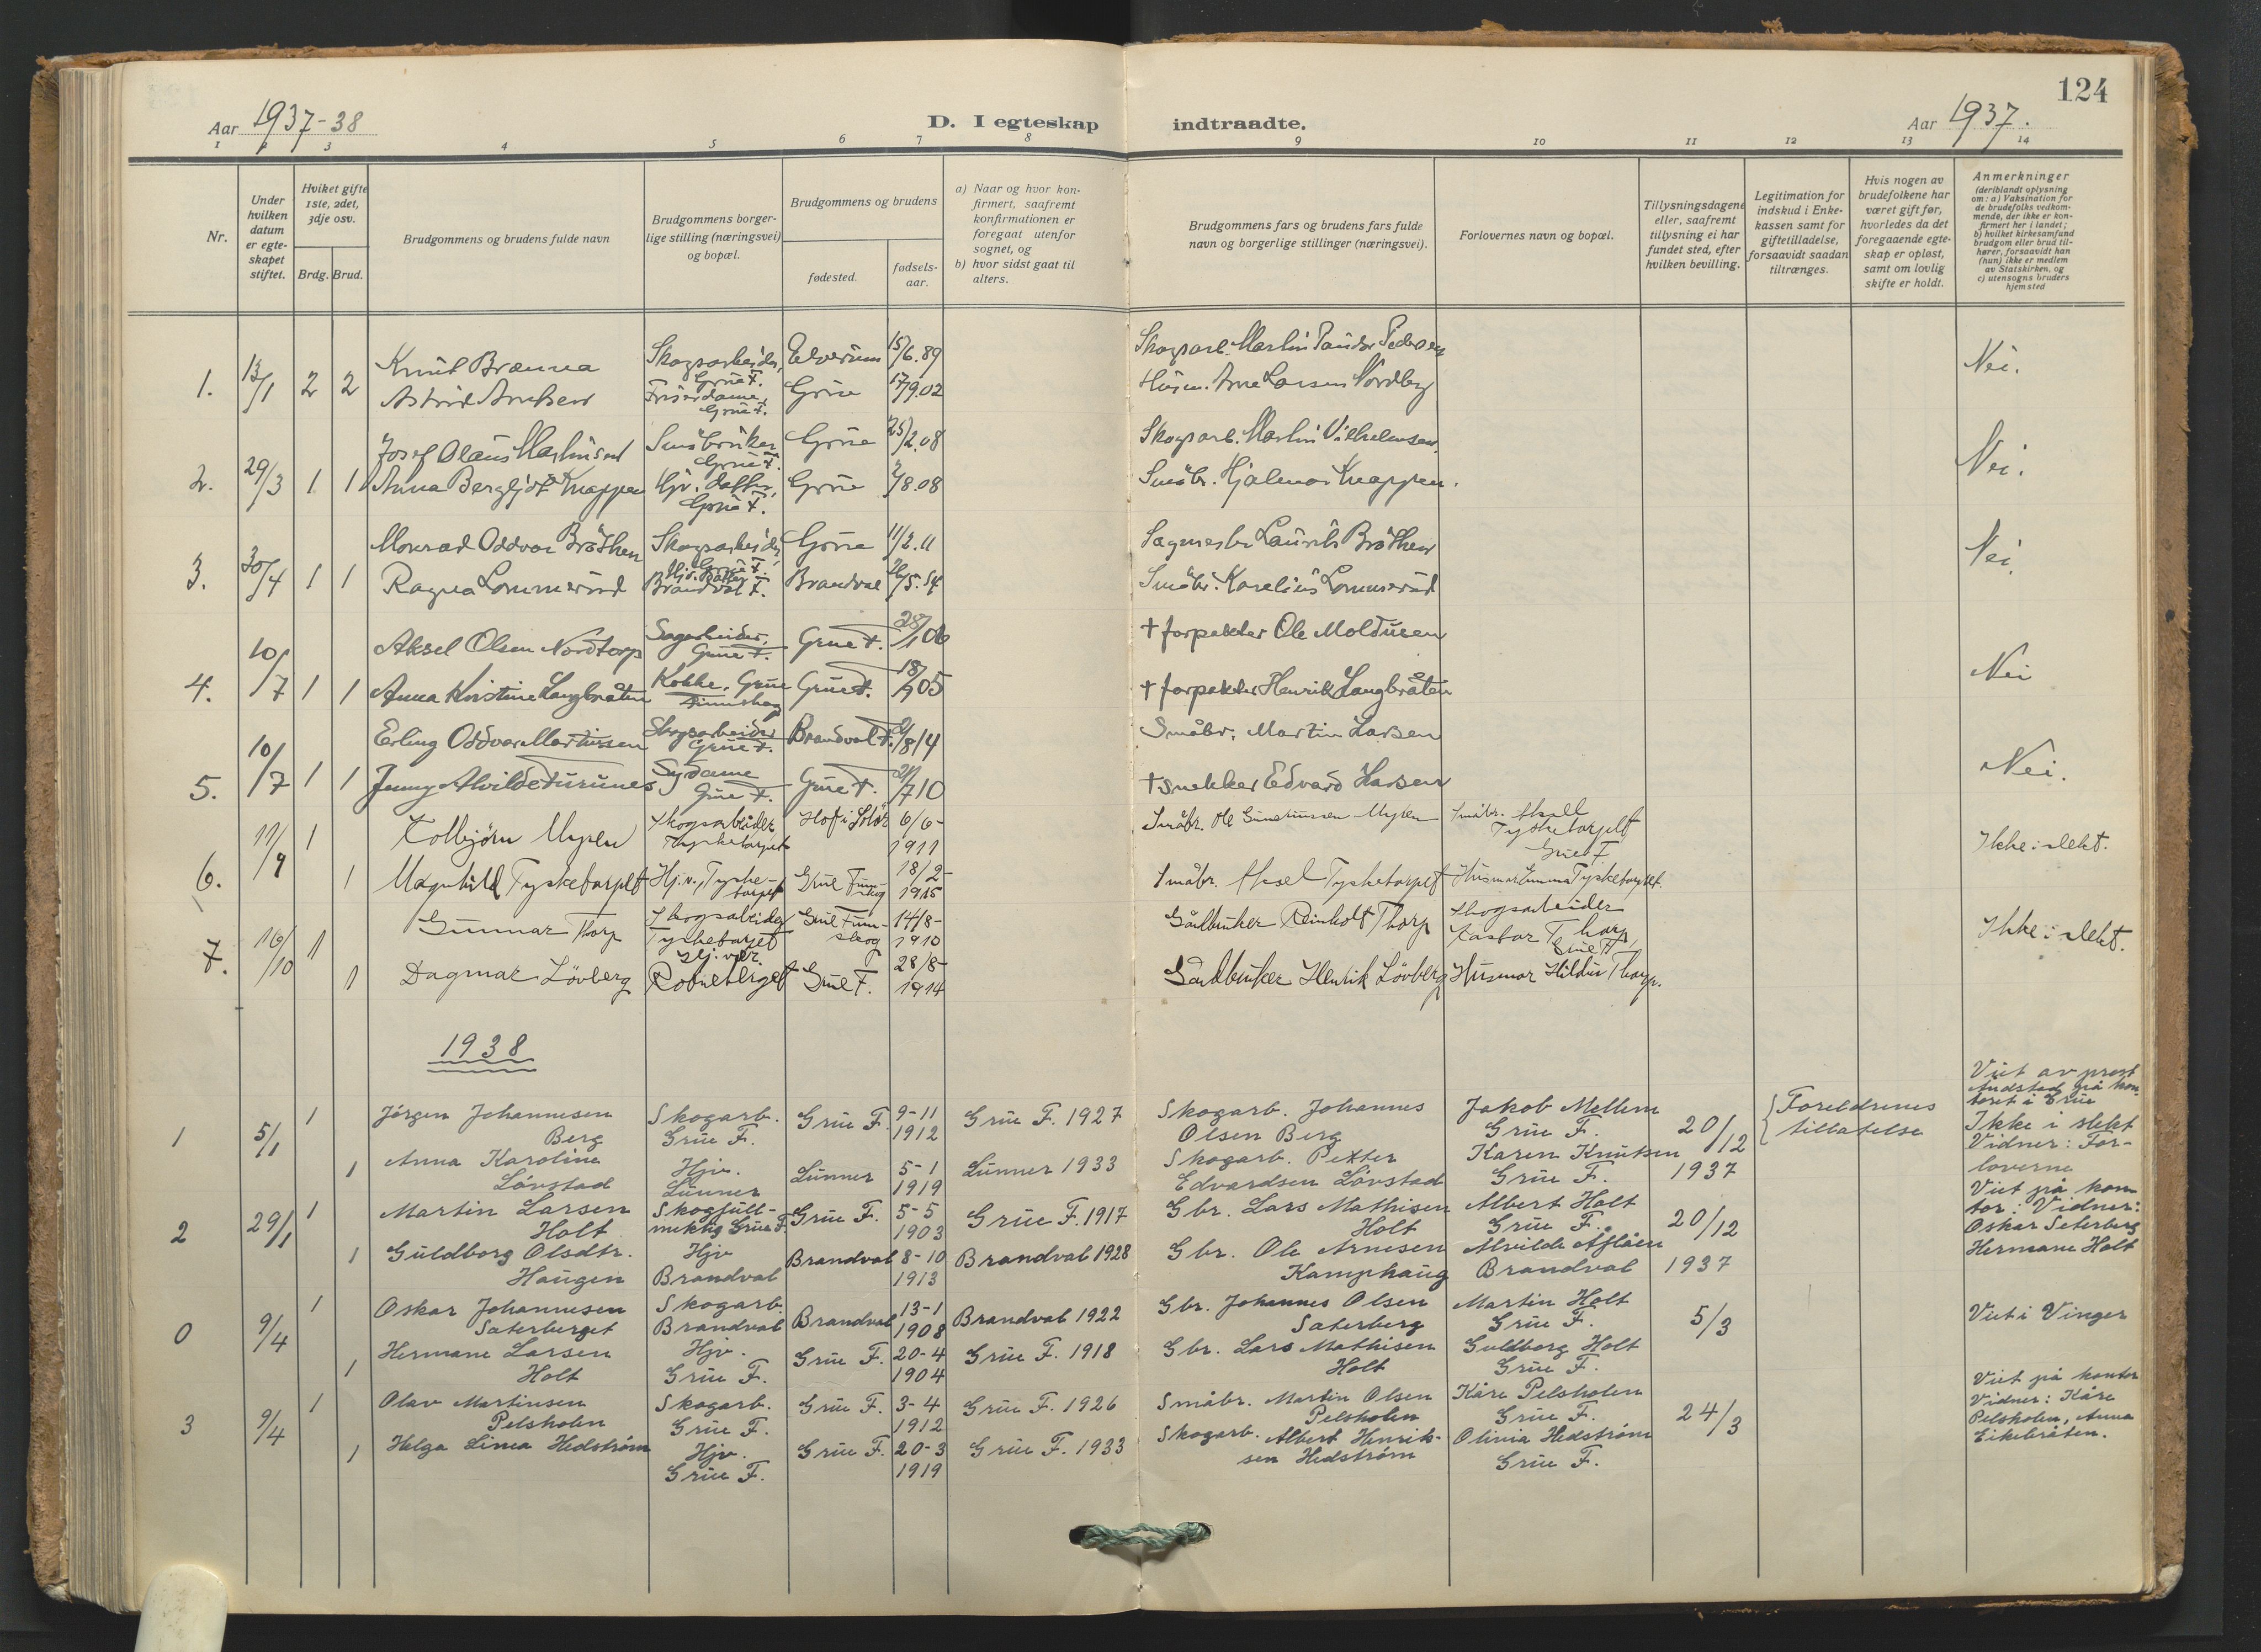 124
Aar 1937-38
D. I egteskap indtraadte.
Aar 1937.
1 2 3 4 5 6 7 8 9 10 11 12 13 14
Nr.
Under hvilken datum er egte-skapet stiftet.
Hvilket gifte 1ste, 2det, 3dje osv.
Brdg. Brud.
Brudgommens og brudens fulde navn
Brudgommens borger-lige stilling (næringsvei) og bopæl.
Brudgommens og brudens
fødested.
fødsels-aar.
a) Naar og hvor kon-firmert, saafremt konfirmationen er foregaat utenfor sognet, og
b) hvor sidst gaat til alters.
Brudgommens fars og brudens fars fulde navn og borgerlige stillinger (næringsvei).
Forlovernes navn og bopæl.
Tillysningsdagene eller, saafremt tillysning ei har fundet sted, efter hvilken bevilling.
Legitimation for indskud i Enke-kassen samt for giftetilladelse, forsaavidt saadan tiltrænges.
Hvis nogen av brudefolkene har været gift før, hvorledes da det foregaaende egte-skap er opløst, samt om lovlig skifte er holdt.
Anmerkninger
(deriblandt oplysning om: a) Vaksination for de brudefolks vedkom-mende, der ikke er kon-firmert her i landet; b) hvilket kirkesamfund brudgom eller brud til-hører, forsaavidt han (hun) ikke er medlem av Statskirken, og c) utensogns bruders hjemsted
1. 13/1 2 2 Knut Brænna Skogsarbeider, Grue F. Elverum 15/6.89 Skogsarb. Martin Pedersen Nei.
Astrid Arnesen Frisørdame, Grue F. Grue 17/9.02 Husm. Arne Larsen Nordberg
2. 29/3 1 1 Josef Olaus Martinsen Småbruker Grue F. Grue 25/2.08 Skogsarb. Martin Vilhelmsen Nei.
Anna Bergljot Knappen Hjv. datter, Grue F. Grue 2/8.08 Småbr. Hjalmar Knappen.
3. 30/4 1 1 Monrad Oddvar Bråthen Skogsarbeider Grue F. Grue 11/2.11 Sagmester Laurits Bråthen Nei.
Ragna Lommerud Hjv. datter Brandval F. Brandval 26/5.14 Småbr. Karelius Lommerud
4. 10/7 1 1 Aksel Olsen Nordtorp Sagarbeider, Grue F. Grue F. 28/1 06 † forpakter Ole Moldusen Nei
Anna Kristine Langbråten Kokke, Grue Finnskog Grue F. 18/9 05 † forpakter Henrik Langbråten
5. 10/7 1 1 Erling Oddvar Martinsen Skogsarbeider Grue F. Brandval F. /8 14 Småbr. Martin Larsen Nei.
Jenny Alvilde Furunes Sydame Grue F. Grue F. 21/7 10 † snekker Edvard Larsen
6. 11/9 1 Kolbjørn Myren Skogsarbeider Tysketorpet Hof i Solør 6/6-1911 Småbr. Ole Guneriussen Myren Småbr. Aksel Tysketorpet Grue F Ikke i slekt.
1 Magnhild Tysketorpet Hj.v., Tysketorpet Grue Finnskog 18/2-1915 Småbr. Aksel Tysketorpet Husmor Emma Tysketorpet.
7. 16/10 1 Gunnar Thorp Skogsarbeider Tysketorpet Grue Finnskog 14/8-1910 Gårdbruker Reinholt Thorp Skogsarbeider Kastor Thorp, Grue F Ikke i slekt.
1 Dagmar Lövberg Hj.v. Rotneberget Grue F. 28/8-1914 Gårdbruker Henrik Lövberg Husmor Hildur Thorp.
1938
1 5/1 1 Jörgen Johannesen Berg Skogarb. Grue F. Grue F. 9-11 1912 Grue F. 1927 Skogarb. Johannes Olsen Berg Jakob Mellem Grue F. 20/12 1937 Foreldrenes tillatelse Viet av prost Andstad på kontoret i Grue Ikke i slekt Vidner: Forloverne
1 Anna Karoline Lövstad Hjv. Lunner Lunner 5-1 1919 Lunner 1933 Skogarb. Petter Edvardsen Lövstad Karen Knutsen Grue F.
2 29/1 1 Martin Larsen Holt Skogfullmektig Grue F. Grue F. 5-5 1903 Grue F. 1917 Gbr. Lars Mathisen Holt Albert Holt Grue F. 20/12 1937 Viet på kontor. Vidner: Oskar Seterberg Hermane Holt
1 Guldborg Olsdtr. Haugen Hjv Brandval Brandval 8-10 1913 Brandval 1928 Gbr. Ole Arnesen Kamphaug Alvilde Aflåen Brandval
0 9/4 1 Oskar Johannesen Saterberget Skogarb. Brandval Brandval 13-1 1908 Brandval 1922 Gbr. Johannes Olsen Saterberg Martin Holt Grue F. 5/3 Viet i Vinger
1 Hermane Larsen Holt Hjv. Grue F. Grue F. 20-4 1904 Grue F. 1918 Gbr. Lars Mathisen Holt Guldborg Holt Grue F.
3 9/4 1 Olav Martinsen Pelsholen Skogarb. Grue F. Grue F. 3-4 1912 Grue F. 1926 Småbr. Martin Olsen Pelsholen Kåre Pelsholen Grue F. 24/3 Viet på kontor Vidner: Kåre Pelsholen, Anna Eikebråten.
1 Helga Linea Hedström Hjv. Grue F. Grue F. 20-3 1919 Grue F. 1933 Skogarb. Albert Henriksen Hedström Olinia Hedström Grue F.